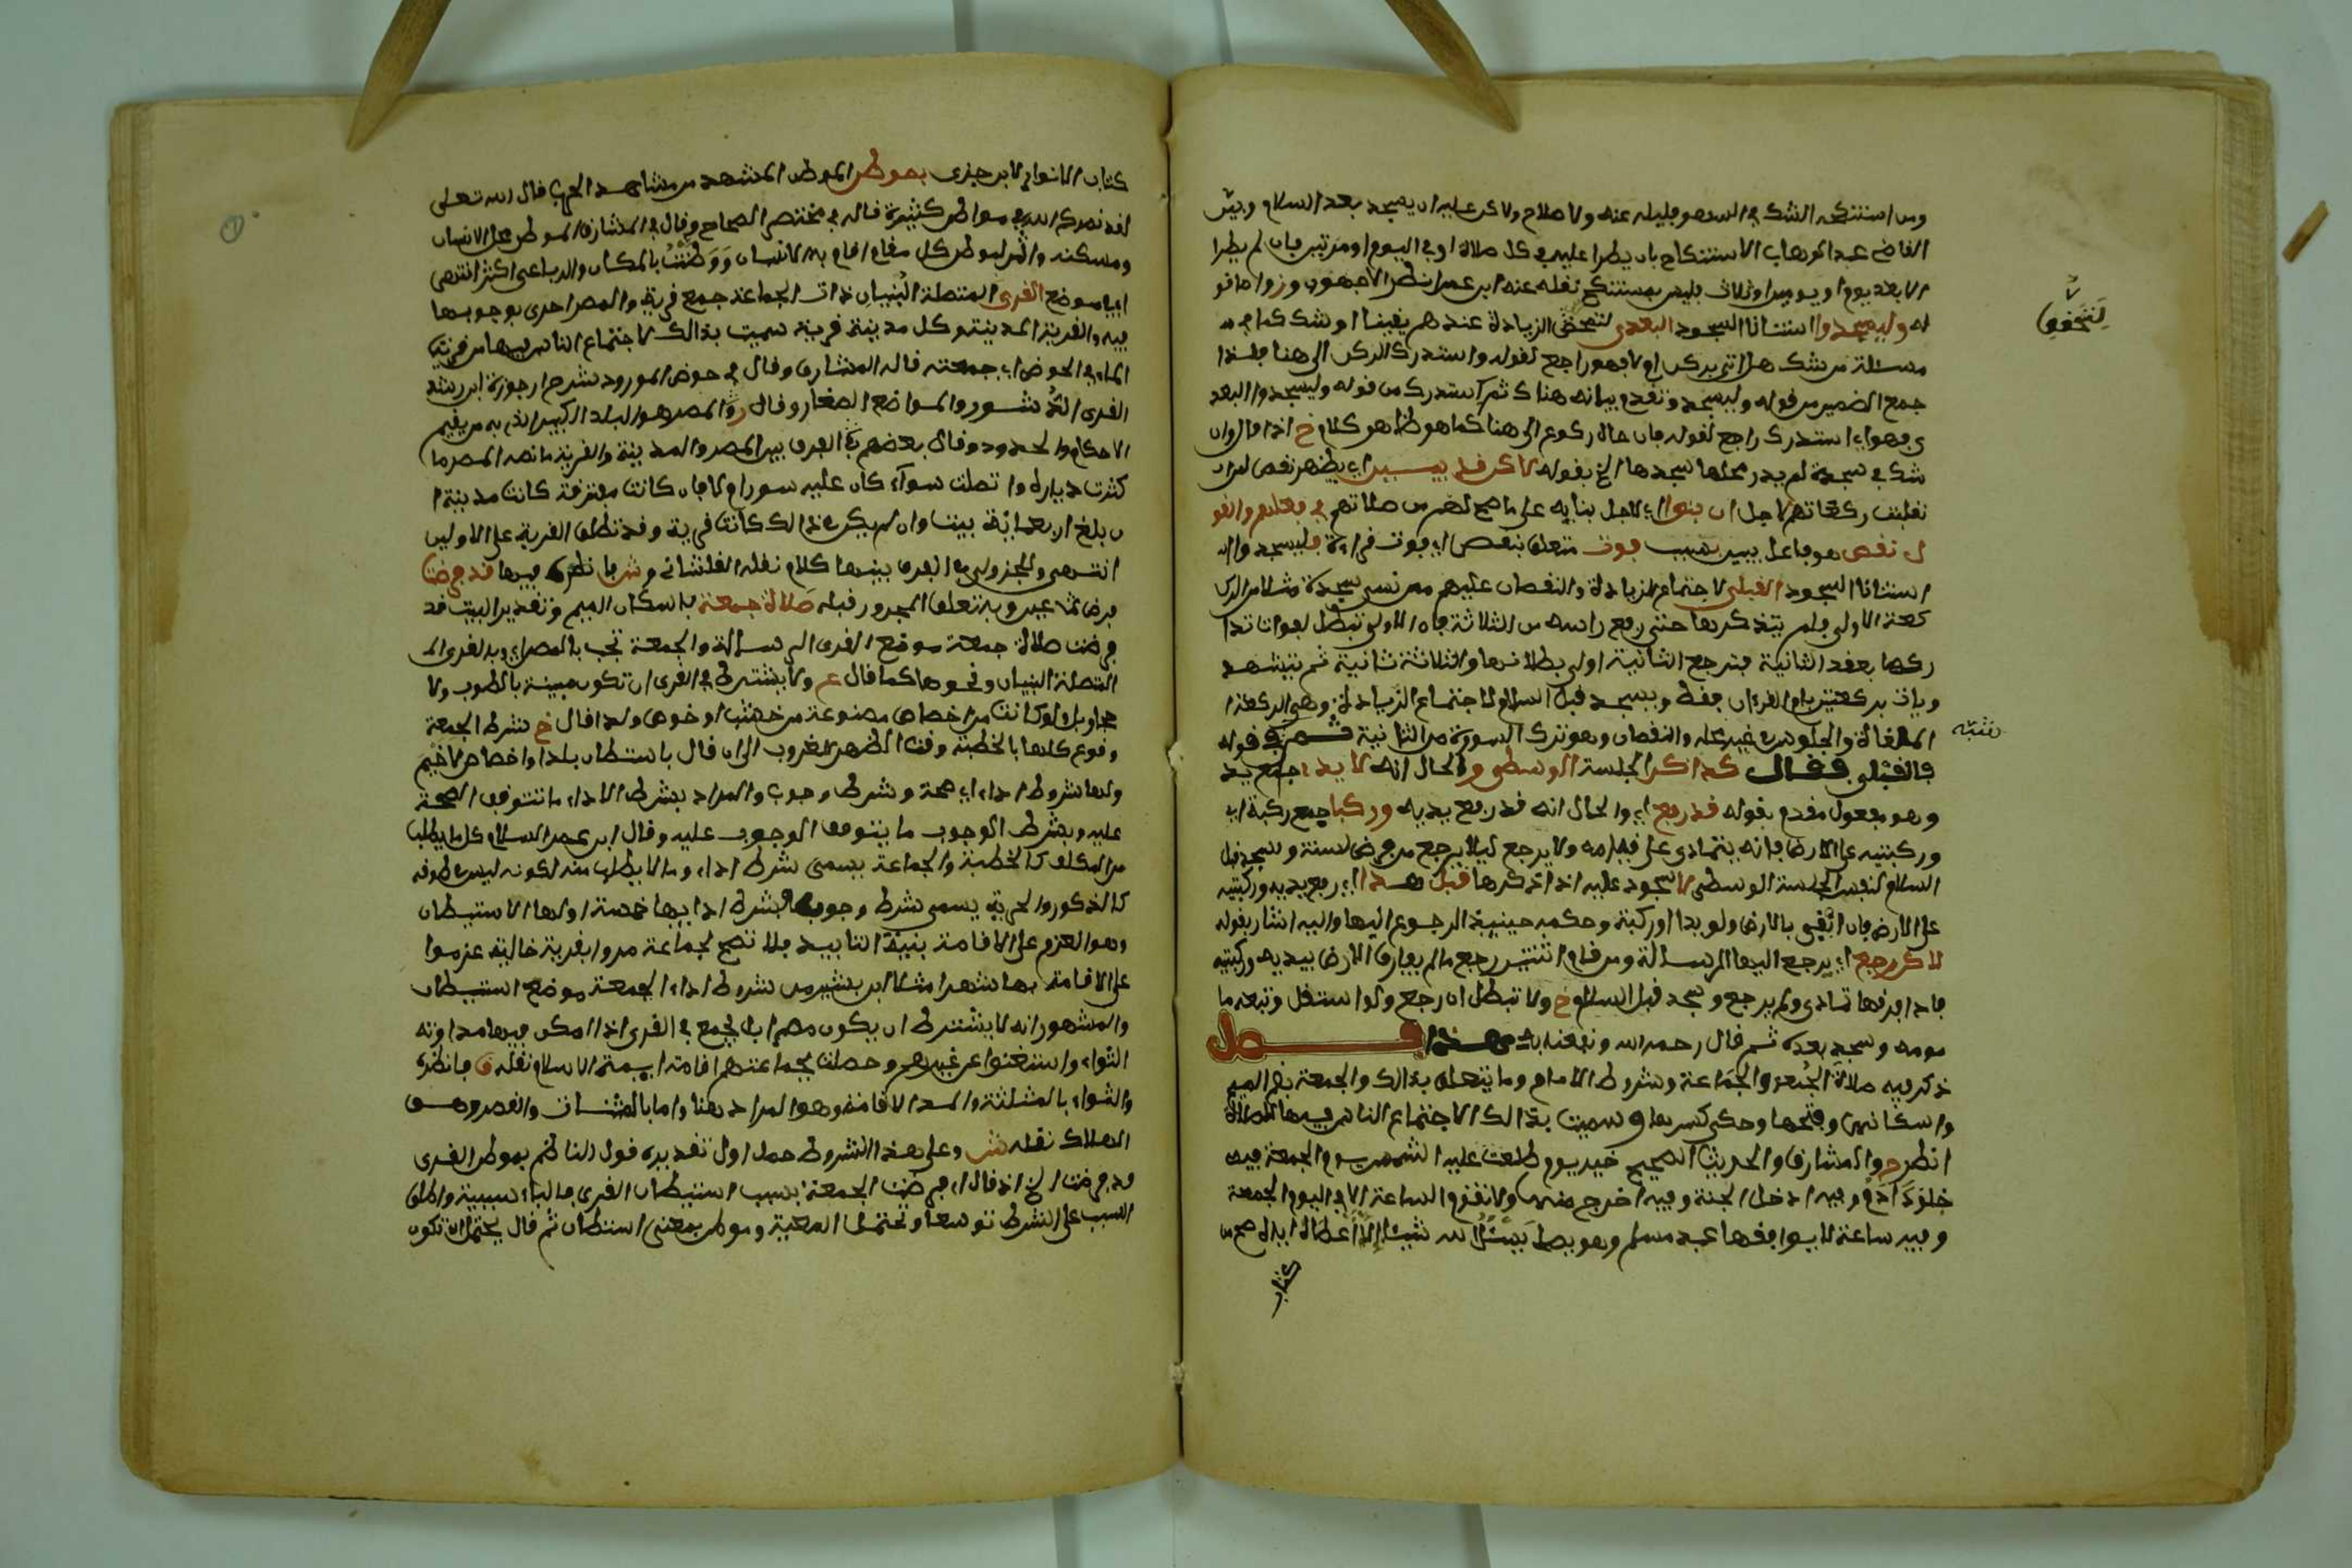 ومن استنكحه الشك في السهو فليله عنه ولا اصلاح ولاكن عليه ان يسجد بعد السلام وبين
القاضي عبد الوهاب الاستنكاح بان يطرا عليه في كل صلاة او في اليوم او مرتين فان لم يطرا
الا بعد يوم او يومين او ثلاث فليس بمستنكح نقله عنه ابن عمر انظر الاجهوري وز وما فو
له وليسجدوا استنانا السجود البعدي لتحقق الزيادة عندهم يقينا او شكا كما في
لِتَحَقُّقِ
مسئلة من شك هل اتى بركن او لا فهو راجع لقوله واستدرك الركن الى هنا فلذا
جمع الضمير من قوله وليسجد وتقدم بيانه هناك ثم استدرك من قوله وليسجدوا البعد
ي فهو اي استدرك راجع لقوله فان حال ركوع الى هنا كما هو ظاهر كلام خ اذا قال وان
شك في سجدة لم يدر محلها سجدها الخ بقوله لاكن قد يبين اي يظهر نقص لمن ان
نقلبت ركعاتهم لاجل ان بنوا اي لاجل بنايه على ما صح لهم من صلاتهم في فعلهم والقو
ل نقص هو فاعل يبين بسبب فوت متعلق بنقص اي فوت قراءة فليسجدوا
استنانا السجود القبلي لاجتماع الزيادة والنقصان عليهم فمن نسي سجدة مثلا من الر
كعة الاولى فلم يتذكرها حتى رفع راسه من الثالثة فان الاولى تبطل لفوات تدا
ركها بعقد الثانية فترجع الثانية اولى ببطلانها والثالثة ثانية ثم يتشهد
وياتي بركعتين بام القرءان فقط ويسجد قبل السلام لاجتماع الزيادة وهي الركعة ا
الملغاة والجلوس في غير محله والنقصان وهو ترك السورة من الثانية ثم نبه في قوله
تنبيه
بالقبلي فقال كذاكر الجلسة الوسطى والحال انه الايد اجمع يد
وهو مفعول مقدم بقوله قد رفع اي والحال انه قد رفع يديه وركبا جمع ركبة اي
وركبتيه على الارض فانه يتمادى على قيامه ولا يرجع ليلا يرجع من فرض لسنة وسجد قبل
السلام لنقص الجلسة الوسطى لا سجود عليه اذا تذكرها قبل هذا اي رفع يديه وركبتيه
على الارض فان ابقى بالارض ولو يدا او ركبة وحكمه حينئذ الرجوع اليها واليه اشار بقوله
لاكن رجع اي يرجع اليها الرسالة ومن قام من اثنتين رجع ما لم يفارق الارض بيديه وركبتيه
فاذا فارقها تمادى ولم يرجع وسجد قبل السلام خ ولا تبطل ان رجع ولو استقل وتبعه ما
مومه وسجد بعده ثم قال رحمه الله ونفعنا به هذا فصل
ذكر فيه صلاة الجُمعة والجماعة وشروط الامام وما يتعلق بذالك والجمعة بضم الميم
واسكانها وفتحها وحكي كسرها وسميت بذالك لاجتماع الناس فيها للصلاة
انظر ح والمشارق والحديث الصحيح خير يوم طلعت عليه الشمس يوم الجمعة فيه
خلق ءادم وفيه ادخل الجنة وفيه اخرج منها ولا تقوم الساعة الا في اليوم الجمعة
وفيه ساعة لا يوافقها عبد مسلم وهو يصلي يَسْئَلُ الله شيئا إلا أعطاه اياه صح من
كتاب
كتاب الانوار لابن جزي بموطن الموطن المشهد من مشاهد الحرب قال الله تعلى
لقد نصركم الله في مواطن كثيرة قاله في مختصر الصحاح وقال في المشارق الموطن محل الانسان
ومسكنه والمراد بوطن كل مقام اقام به الانسان وَوَطَنْتُ بالمكان والرباعي اكثر انتهى
اي بموضع القرى المتصلة البُنيان ذات الجماعة جمع قرية والمصر احرى بوجوبها
فيه والقرية المدينة وكل مدينة قرية سميت بذالك لاجتماع الناس فيها من قريت
الماء في الحوض اي جمعته قاله المشارق وقال في حوض المورود شرح ارجوزة ابن رشد
القرى الدُّشور والمواضع الصغار وقال والمصر هو البلد الكبير الذي به من يقيم
الاحكام والحدود وقال بعضهم في الفرق بين المصر والمدينة والقرية ما نصه المصر ما
كثرت دياره واتصلت سواء كان عليه سور ام لا فان كانت مفترقة كانت مدينة ا
ن بلغ اربعماية بيتا وان لم يكن ذالك كانت قرية وقد تطلق القرية على الاولين
انتهى وللجزولي في الفرق بينها كلام نقله القلشاني وش فانظره فيها قد فرضت
فرض عين وبه يتعلق المجرور قبله صلاة جمعة باسكان الميم وتقدير البيت قد
فرضت صلاة جمعة بموضع القرى الرسالة والجمعة تجب بالمصر اي وبالقرى ا
المتصلة البنيان ونحوها كما قال عج ولا يشترط في القرى ان تكون مبينة بالطوب ولا
حجار بل ولو كانت من اخصاص مصنوعة من خشب او خوص ولذا قال خ شرط الجمعة
وقوع كلها بالخطبة وقت الظهر للغروب الى ان قال باستيطان بلد او اخصاص لا خيم
ولها شروط اداء اي صحة وشرط وجوب والمراد بشرط الاداء ما تتوقف الصحة
عليه وبشرط الوجوب ما يتوقف الوجوب عليه وقال ابن عبد السلام كل ما يطلب
من المكلف كالخطبة والجماعة يسمى شرط اداء وما لا يطلب منه لكونه ليس في طوقه
كالذكورية والحرية يسمى شرط وجوب وشرط ادايها خمسة اولها الاستيطان
وهو العزم على الاقامة بنية التابيد فلا تصح لجماعة مروا بقرية خالية عزموا
على الاقامة بها شهرا مثلا ابن بشير من شروط اداء الجمعة موضع استيطان
والمشهور انه لا يشترط ان يكون مصرا بل يجمع في القرى اذا امكن فيها مداومة
الثواء واستغنوا عن غيرهم وحصلت بجماعتهم اقامة ابهة الاسلام نقله ق فانظره
والثواء بالمثلثة والمد الاقامة وهو المراد هنا واما بالمثنات والقصر وهو
الهلاك نقله ش وعلى هذا الشروط حمل اول تقديره قول الناظم بموطن القرى
قد فرضت الخ اذ قال اي فرضت الجمعة بسبب استيطان القرى فالباء سببية واطلق
السبب على الشرط توسعا ويحتمل المعية وموطن بمعنى استيطان ثم قال يحتمل ان تكون